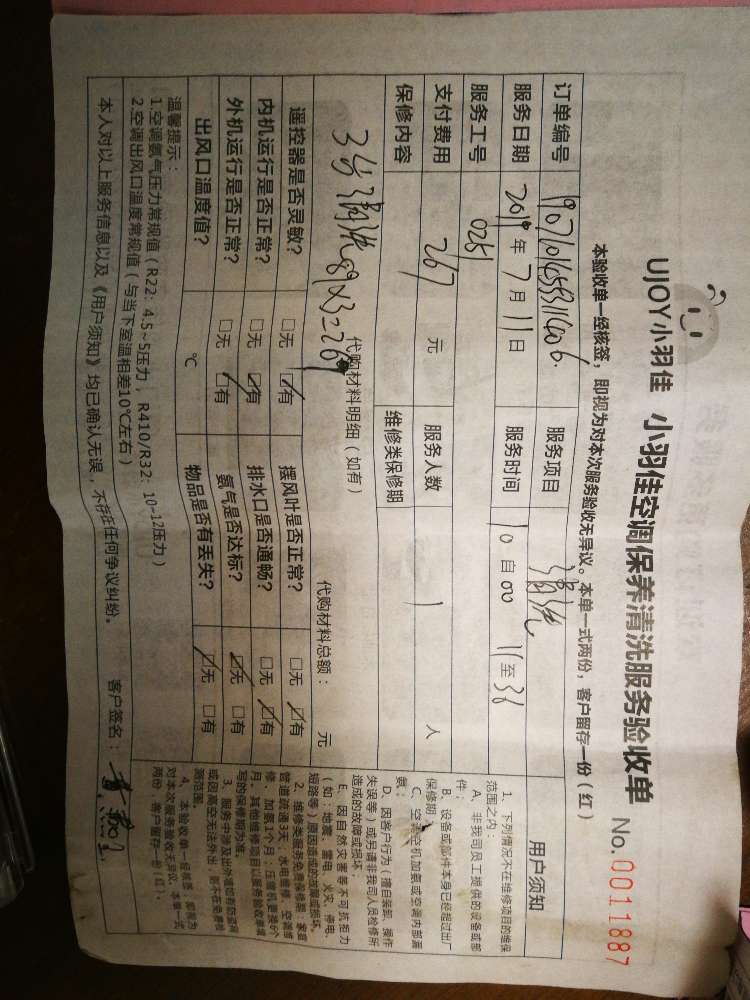 UJOY小羽佳 小羽佳空调保养清洗服务验收单 No.0011887
本验收单一经核签，即视为对本次服务验收无异议。本单一式两份，客户留存一份（红）
订单编号 服务项目 清洗
服务日期 2019年7月11日 服务时间 10自00 11至38
服务工号 0251
支付费用 267 元 服务人数 1 人
保修内容 维修类保修期
代购材料明细（如有） 代购材料总额： 元
3台 清洗 89×3=267
遥控器是否灵敏？ □无 ☑有 摆风叶是否正常？ □无 ☑有
内机运行是否正常？ □无 ☑有 排水口是否通畅？ □无 ☑有
外机运行是否正常？ □无 ☑有 氨气是否达标？ ☑无 □有
出风口温度值？ ℃ 物品是否有丢失？ ☑无 □有
温馨提示：
1.空调氨气压力常规值（R22：4.5~5压力，R410/R32：10-12压力）
2.空调出风口温度常规值（与当下室温相差10℃左右）
本人对以上服务信息以及《用户须知》均已确认无误，不存在任何争议纠纷。 客户签名：
用户须知
1、下列情况不在维修项目的维保
范围之内：
A、非我司员工提供的设备或部
件；
B、设备或部件本身已经超过出厂
保修期；
C、空调空机加氨或空调内部漏
氨；
D、因客户行为（擅自装卸、操作
失误等）或另请非我司人员检修所
造成的故障或损坏，
E、因自然灾害等不可抗拒力
（如：地震、雷电、火灾、停电、
短路等）原因造成的故障或损坏。
2、维修类服务免费保修期：家庭
管道疏通3天，水电维修、空调维
修、加氨1个月；压缩机更换6个
月。其他维修项目以服务验收单填
写的保修期为准。
4、本验收单一经核签，即视为
对本次服务验收无异议，本单一式
两份，客户留存一份（红）。